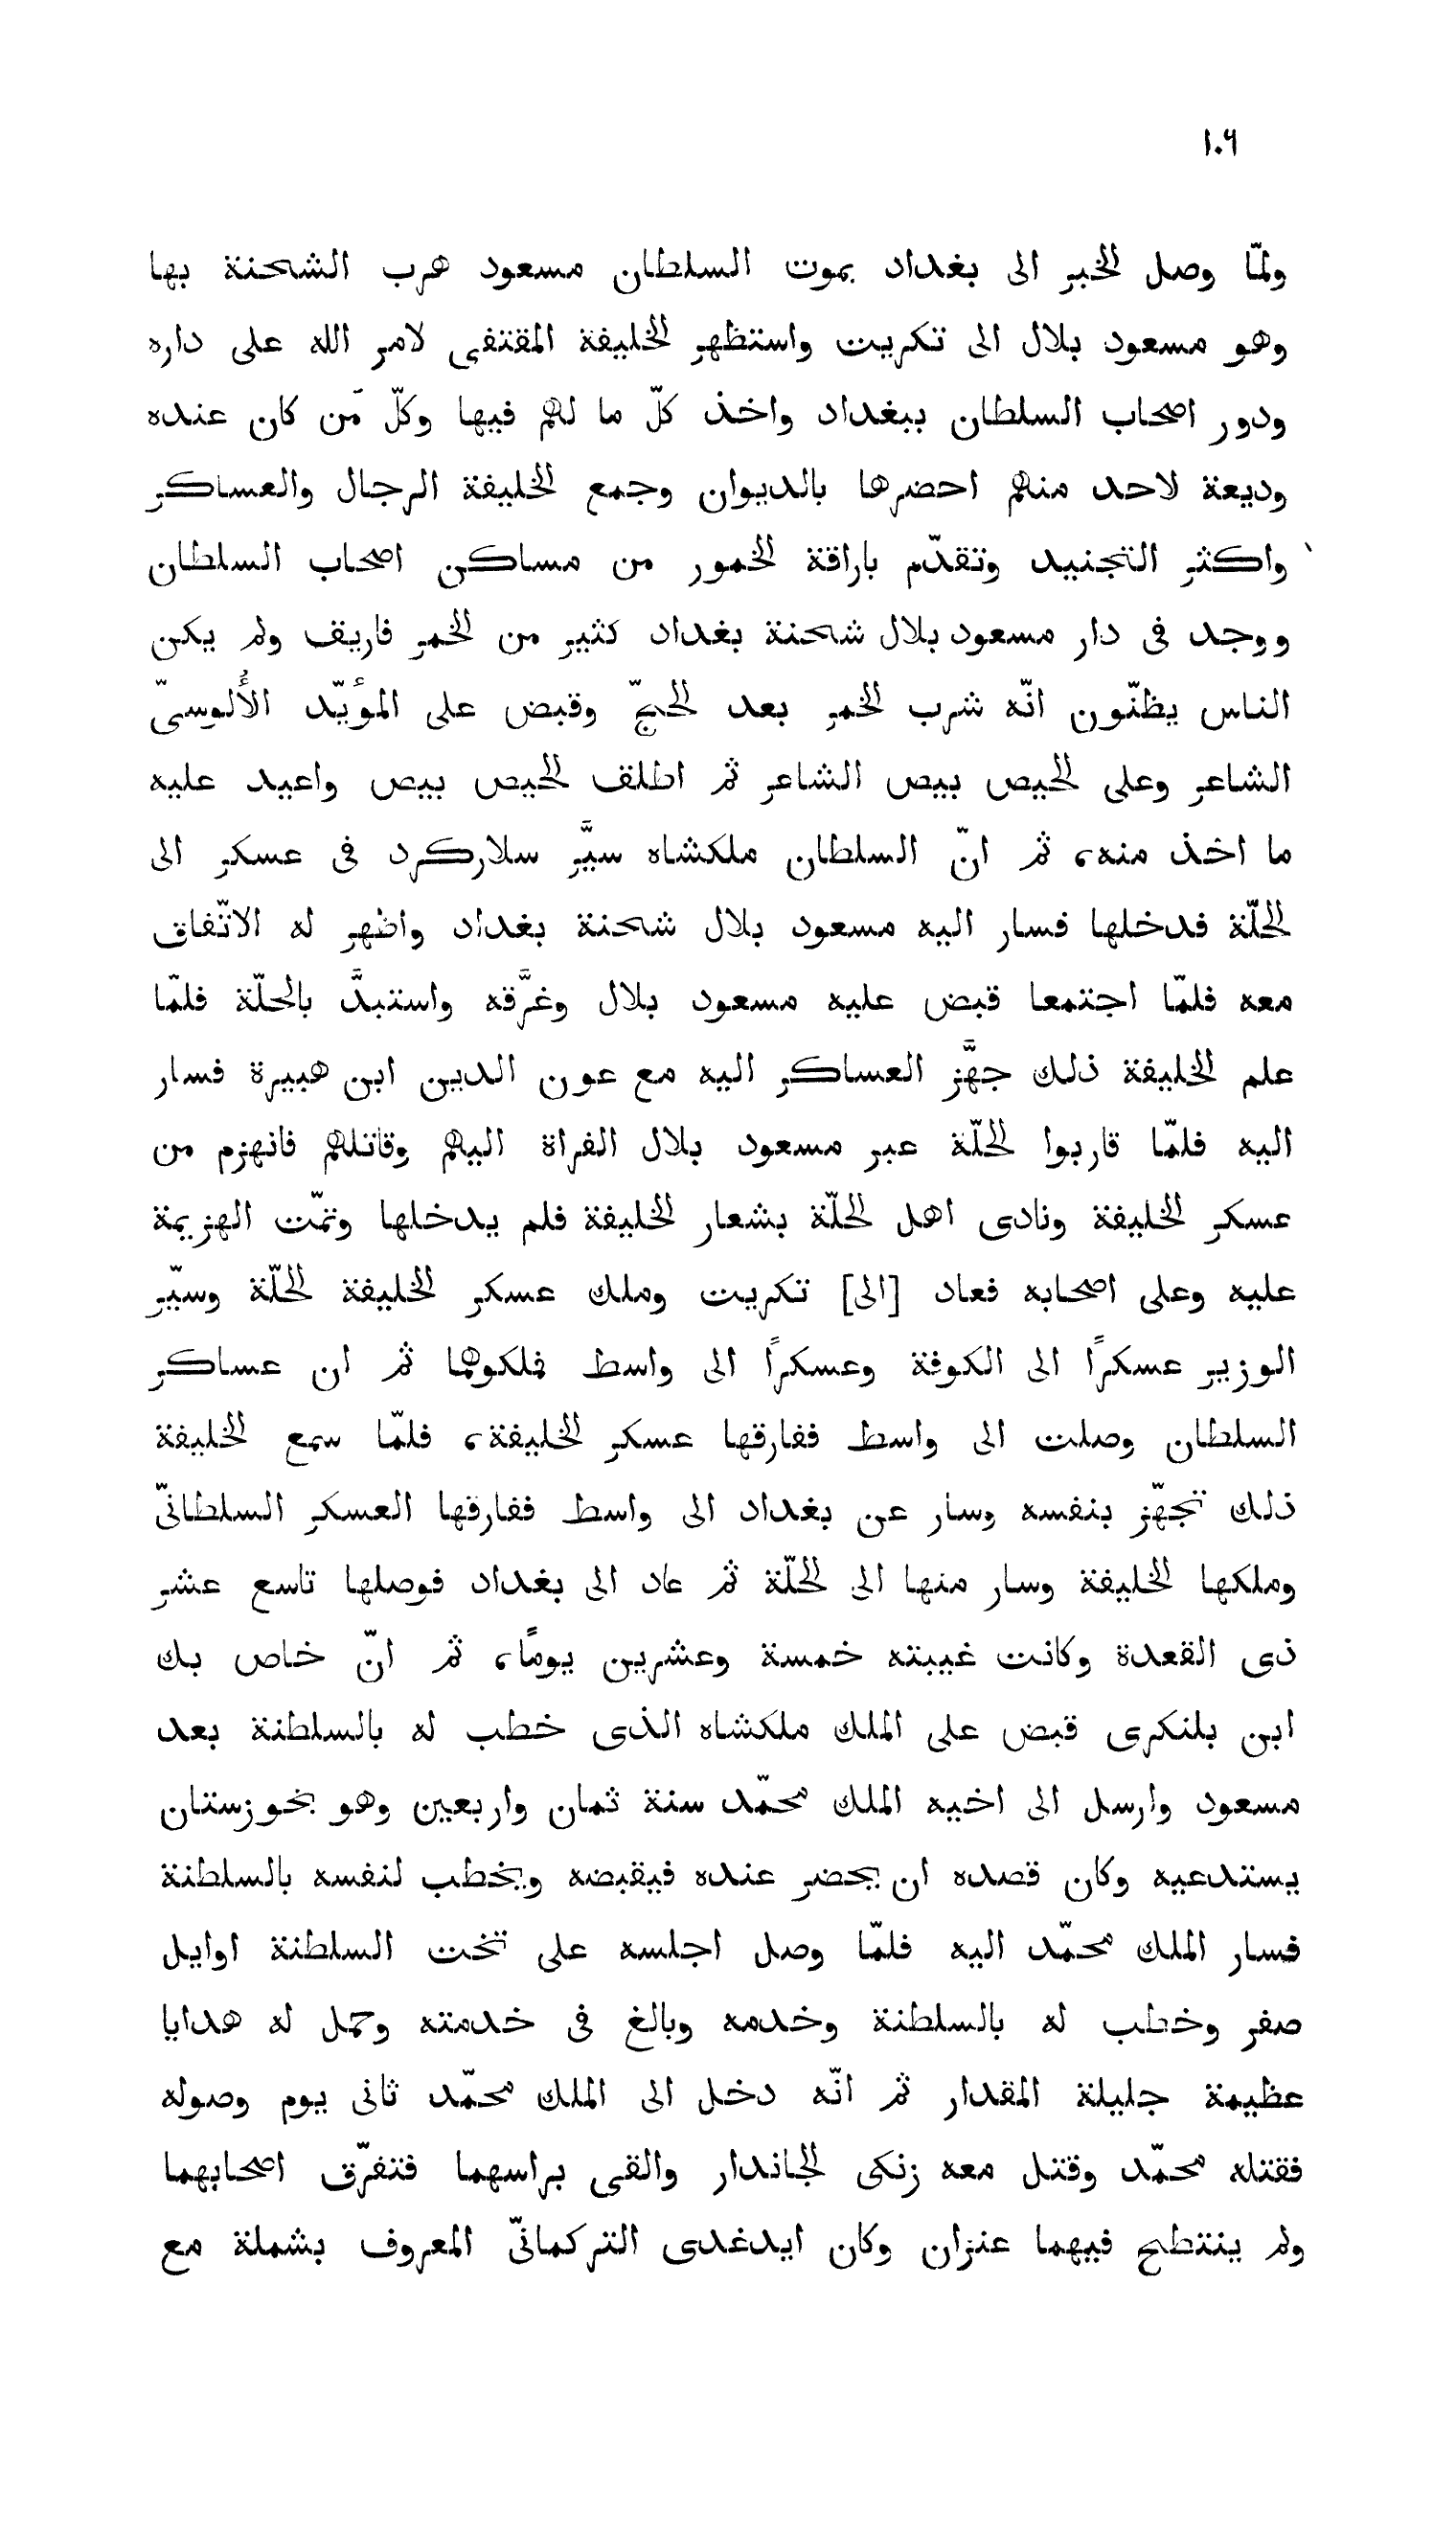 ١٠٦
ولمّا وصل الخبر الى بغداد بموت السلطان مسعود هرب الشحنة بها
وهو مسعود بلال الى تكريت واستظهر الخليفة المقتفى لامر الله على داره
ودور اصحاب السلطان ببغداد واخذ كلّ ما لهم فيها وكلّ مَن كان عنده
وديعة لاحد منهم احضرها بالديوان وجمع الخليفة الرجال والعساكر
واكثر التجنيد وتقدّم باراقة الخمور من مساكن اصحاب السلطان
ووجد فى دار مسعود بلال شحنة بغداد كثير من الخمر فاريق ولم يكن
الناس يظنّون انّه شرب الخمر بعد الحجّ وقبض على المؤيّد الأُلوسىّ
الشاعر وعلى الحيص بيص الشاعر ثم اطلق الحيص بيص واعيد عليه
ما اخذ منه، ثم انّ السلطان ملكشاه سيَّر سلاركرد فى عسكر الى
الحلّة فدخلها فسار اليه مسعود بلال شحنة بغداد واظهر له الاتّفاق
معه فلمّا اجتمعا قبض عليه مسعود بلال وغرَّقه واستبدَّ بالحلّة فلمّا
علم الخليفة ذلك جهَّز العساكر اليه مع عون الدين ابن هبيرة فسار
اليه فلمّا قاربوا الحلّة عبر مسعود بلال الفراة اليهم وقاتلهم فانهزم من
عسكر الخليفة ونادى اهل الحلّة بشعار الخليفة فلم يدخلها وتمّت الهزيمة
عليه وعلى اصحابه فعاد [الى] تكريت وملك عسكر الخليفة الحلّة وسيّر
الوزير عسكرًا الى الكوفة وعسكرًا الى واسط فملكوهما ثم ان عساكر
السلطان وصلت الى واسط ففارقها عسكر الخليفة، فلمّا سمع الخليفة
ذلك تجهّز بنفسه وسار عن بغداد الى واسط ففارقها العسكر السلطانىّ
وملكها الخليفة وسار منها الى الحلّة ثم عاد الى بغداد فوصلها تاسع عشر
ذى القعدة وكانت غيبته خمسة وعشرين يومًا، ثم انّ خاص بك
ابن بلنكرى قبض على الملك ملكشاه الذى خطب له بالسلطنة بعد
مسعود وارسل الى اخيه الملك محمّد سنة ثمان واربعين وهو بخوزستان
يستدعيه وكان قصده ان يحضر عنده فيقبضه ويخطب لنفسه بالسلطنة
فسار الملك محمّد اليه فلمّا وصل اجلسه على تخت السلطنة اوايل
صفر وخطب له بالسلطنة وخدمه وبالغ فى خدمته وحمل له هدايا
عظيمة جليلة المقدار ثم انّه دخل الى الملك محمّد ثانى يوم وصوله
فقتله محمّد وقتل معه زنكى الجاندار والقى براسهما فتفرّق اصحابهما
ولم ينتطح فيهما عنزان وكان ايدغدى التركمانىّ المعروف بشملة مع